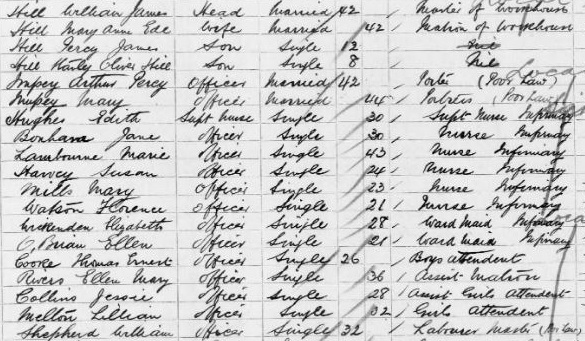 Hill William James Head Married 42 Master of Workhouse
Hill Mary Ann Ede Wife Married 42 Matron of Workhouse
Hill Percy James Son Single 12
Hill Harly Oliver Hill Son Single 8 Nil
Impey Arthur Percy Officer Married 42 Porter (Poor Law)
Impey Mary Officer Married 44 Portress (Poor Law)
Hughes Edith Supt Nurse Single 30 Supt Nurse Infirmary
Bonham Jane Officer Single 30 Nurse Infirmary
Lambourne Marie Officer Single 43 Nurse Infirmary
Harvey Susan Officer Single 24 Nurse Infirmary
Mills Mary Officer Single 23 Nurse Infirmary
Watson Florence Officer Single 21 Nurse Infirmary
Wickenden Elizabeth Officer Single 28 Ward Maid Infirmary
O'Brian Ellen Officer Single 21 Ward Maid Infirmary
Cooke Thomas Ernest Officer Single 26 Boys attendent
Rivers Ellen Mary Officer Single 36 Assist Matron
Collins Jessie Officer Single 28 Assist Girls Attendent
Melton Lillian Officer Single 32 Girls Attendent
Shepherd William Officer Single 32 Labour Master (Poor Law)